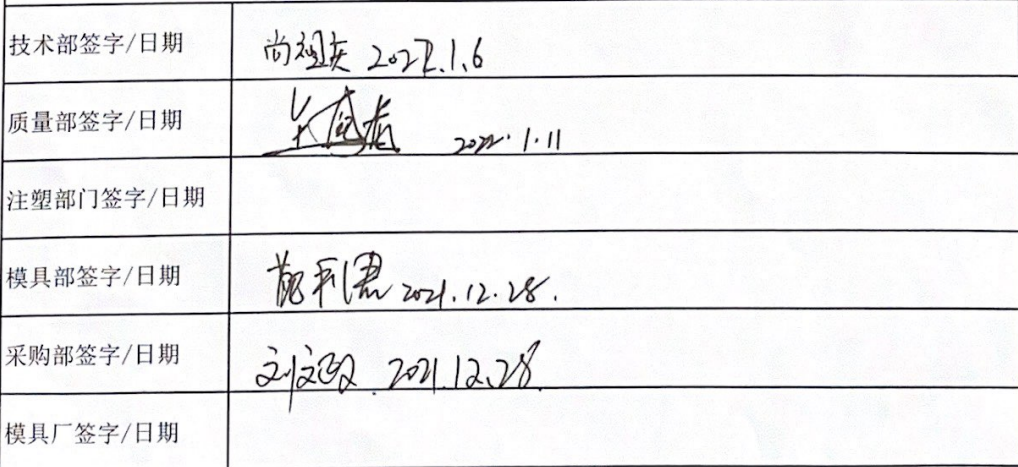 技术部签字/日期 尚祖庆 2022.1.6
质量部签字/日期 2022.1.11
注塑部门签字/日期
模具部签字/日期 2021.12.28.
采购部签字/日期 刘文政 2021.12.28.
模具厂签字/日期